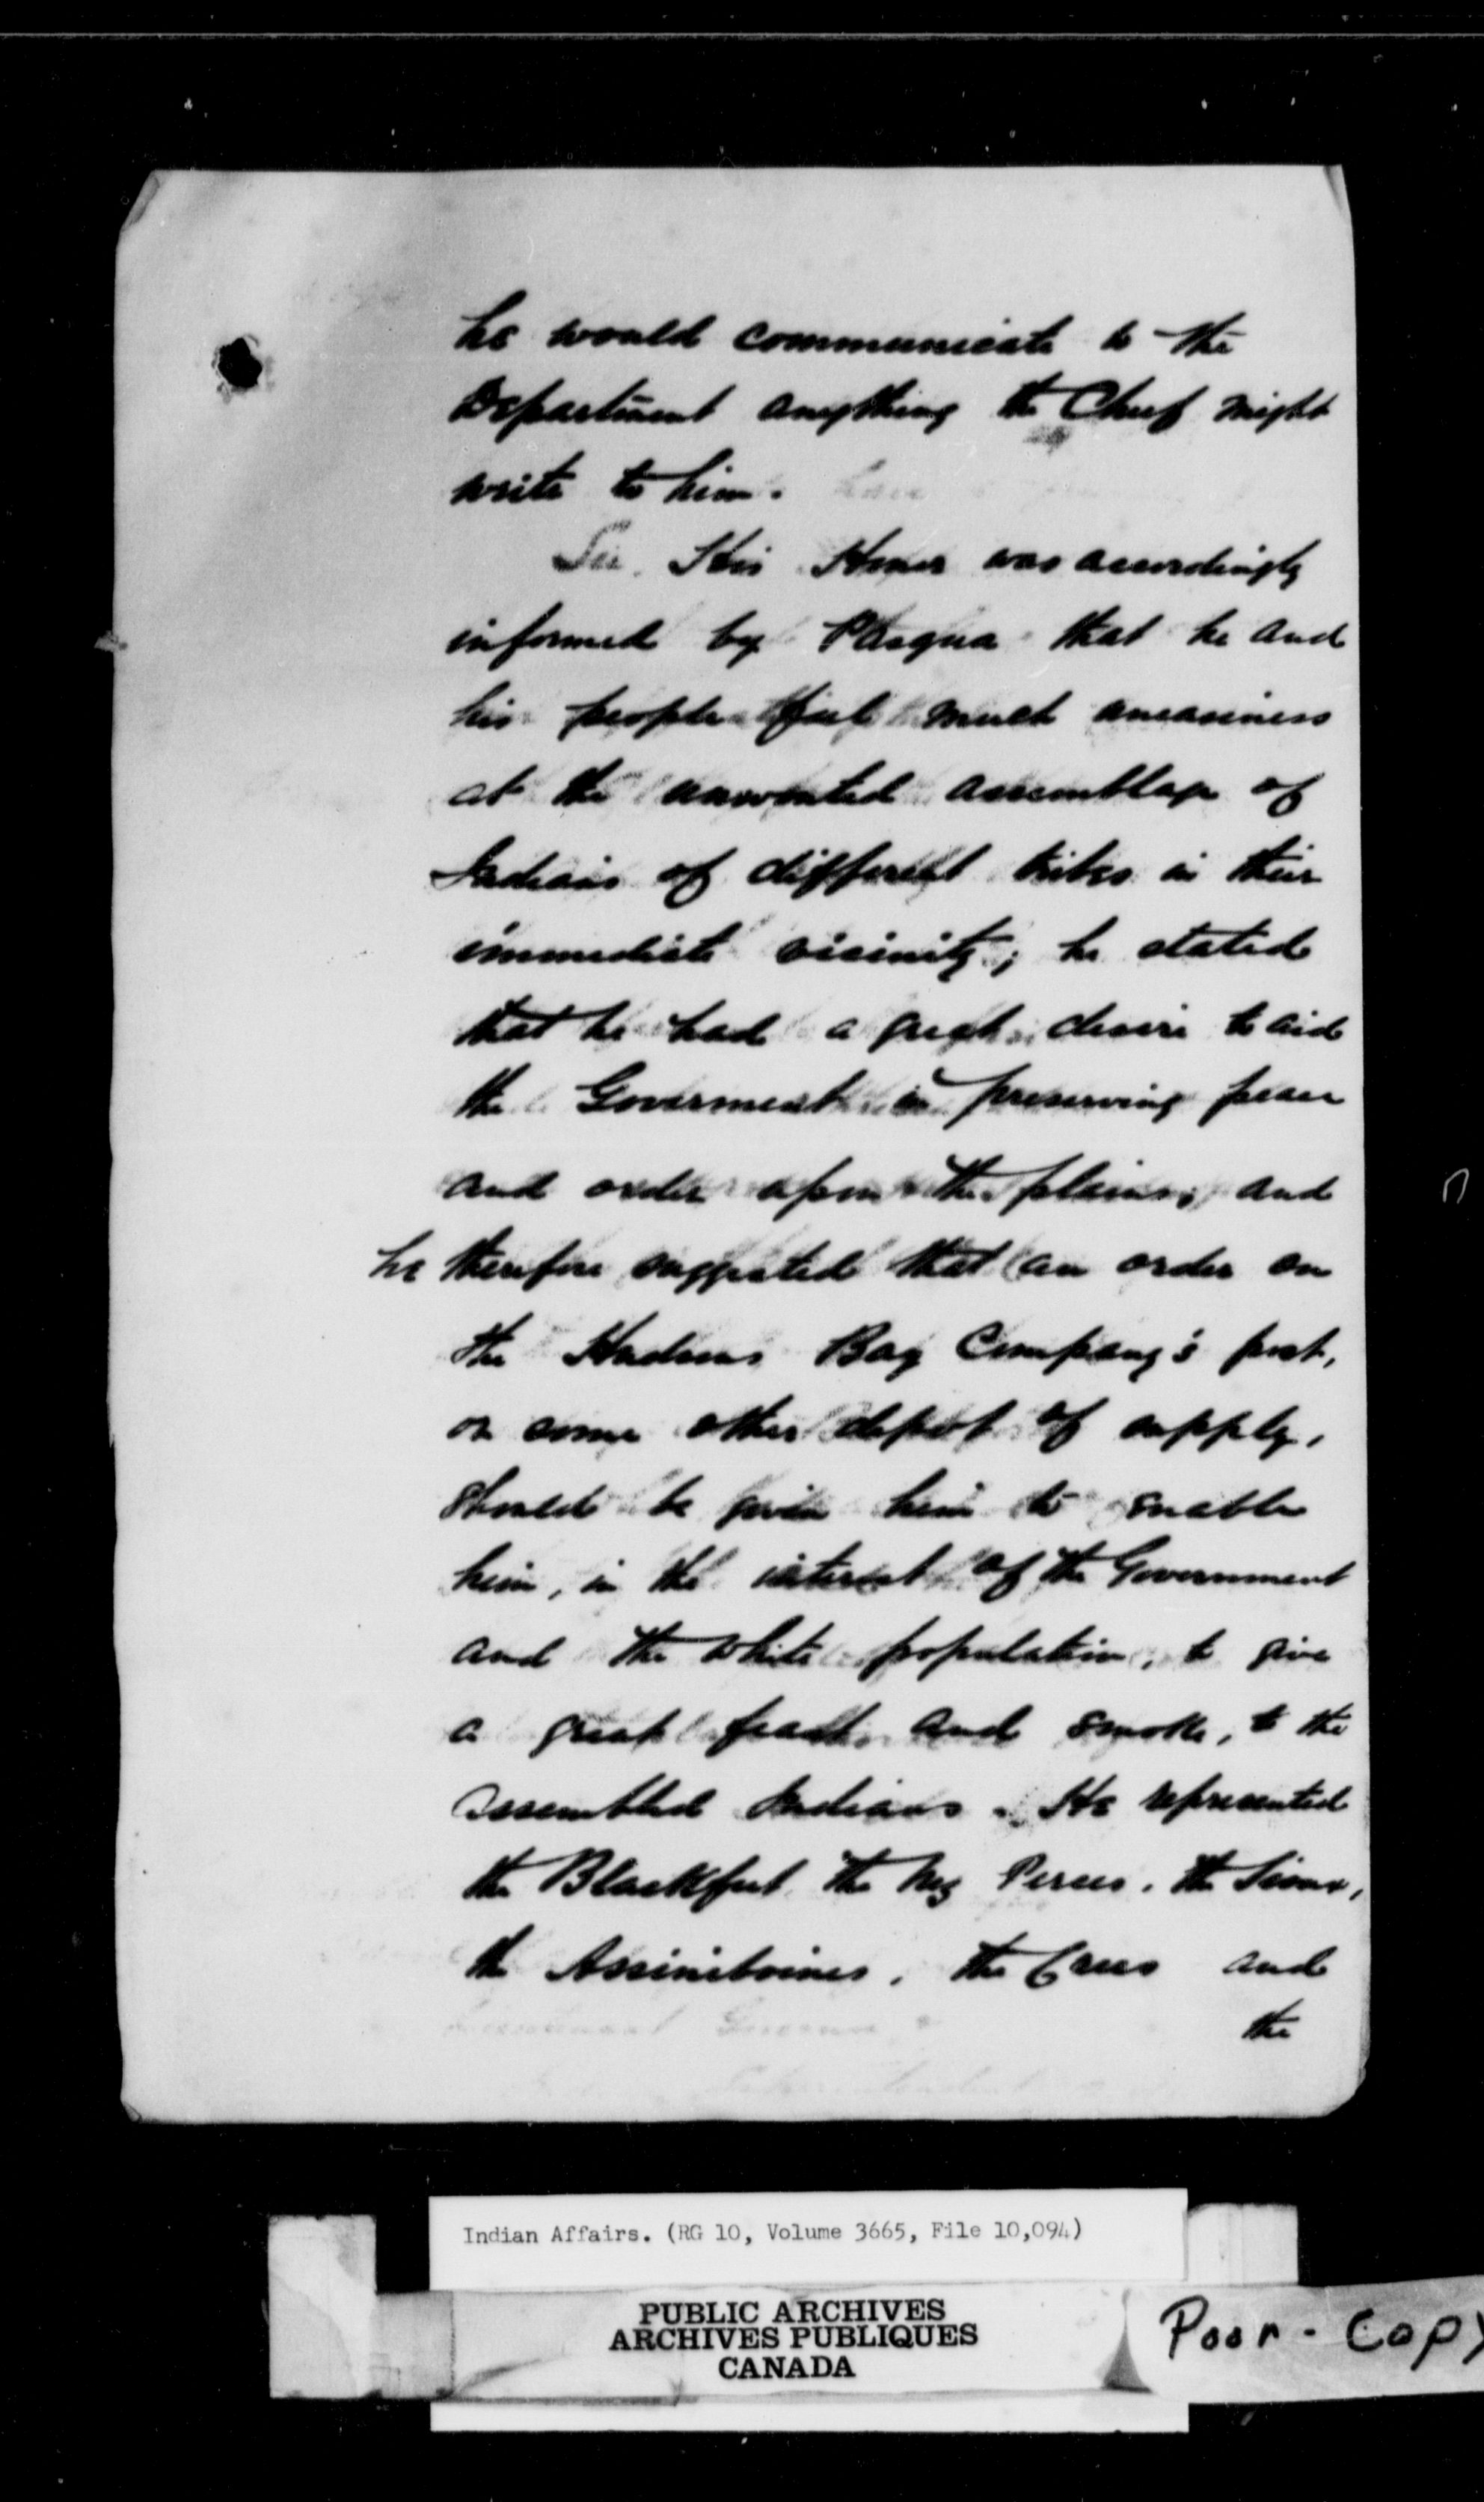 he would communicate to the
Department anything the Chief might
write to him.
His Honor was accordingly
informed by Pasqua that he and
his people feel much uneasiness
at the unwonted assemblage of
Indians of different tribes in their
immediate vicinity; he stated
that he had a great desire to aid
the Goverment in preserving peace
and order upon the plains, and
he therefore suggested that an order on
the Hudsons Bay Company's post,
or some other depôt of supply,
should be given him to enable
him, in the interest of the Government
and the White population, to give
a great feast and smoke, to the
assembled Indians. He represented
the Blackfeet the Nez Perces, the Sioux,
the Assiniboines, the Crees and
the
Indian Affairs. (RG 10, Volume 3665, File 10,094)
PUBLIC ARCHIVES
ARCHIVES PUBLIQUES
CANADA
Poor - Copy